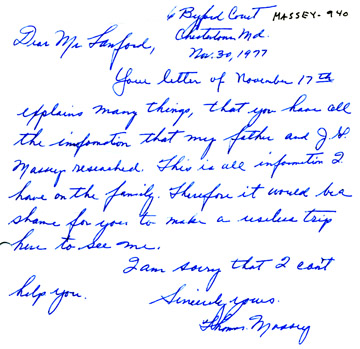 6 Byford Court MASSEY-940
Chestertown Md.
Dear Mr Sanford, Nov. 30, 1977
Your letter of November 17th
explains many things, that you have all
the information that my father and J H
Massey reseached. This is all information I
have on the family. Therefore it would be a
shame for you to make a useless trip
here to see me.
I am sorry that I can't
help you. Sincerely yours.
Thomas Massey